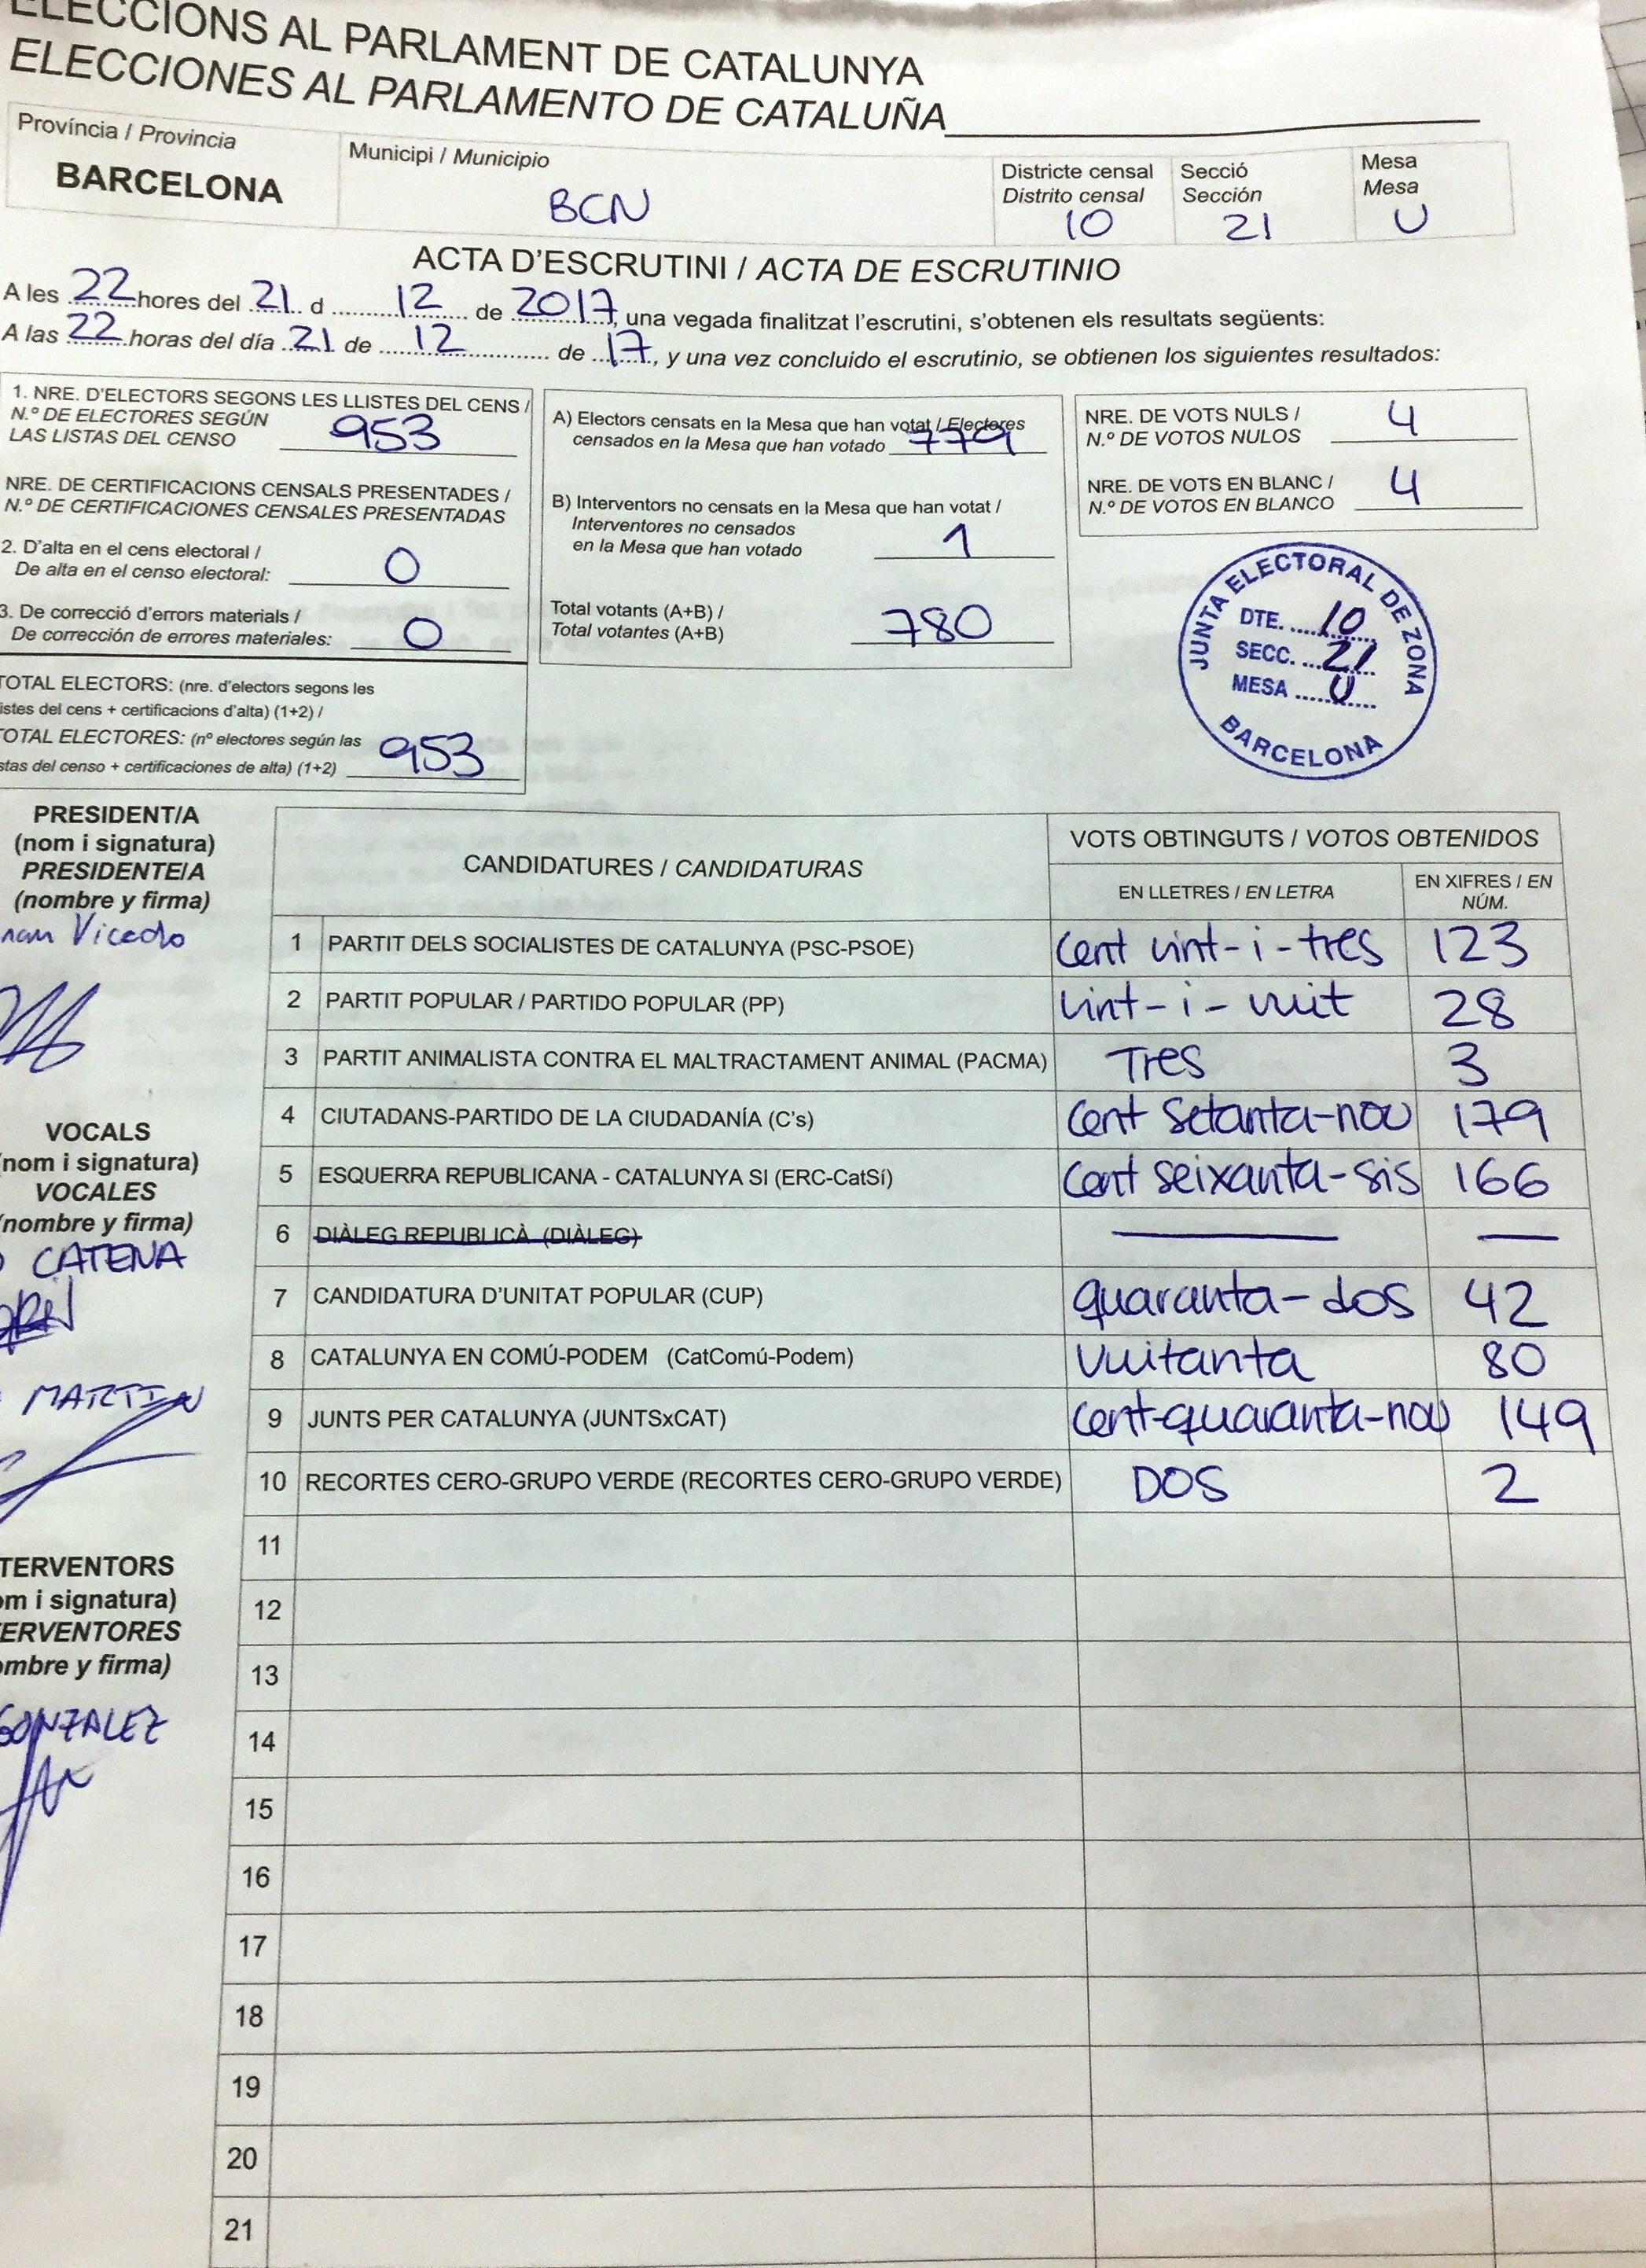 ELECCIONS AL PARLAMENT DE CATALUNYA
ELECCIONES AL PARLAMENTO DE CATALUÑA
Província / Provincia
BARCELONA
Municipi / Municipio
BCN
Districte censal
Distrito censal
10
Secció
Sección
21
Mesa
Mesa
U
ACTA D'ESCRUTINI / ACTA DE ESCRUTINIO
A les 22 hores del 21 d 12 de 2017, una vegada finalitzat l'escrutini, s'obtenen els resultats següents:
A las 22 horas del día 21 de 12 de 17, y una vez concluido el escrutinio, se obtienen los siguientes resultados:
1. NRE. D'ELECTORS SEGONS LES LLISTES DEL CENS /
N.º DE ELECTORES SEGÚN
LAS LISTAS DEL CENSO 953
NRE. DE CERTIFICACIONS CENSALS PRESENTADES /
N.º DE CERTIFICACIONES CENSALES PRESENTADAS
2. D'alta en el cens electoral /
De alta en el censo electoral: 0
3. De correcció d'errors materials /
De corrección de errores materiales: 0
TOTAL ELECTORS: (nre. d'electors segons les
istes del cens + certificacions d'alta) (1+2) /
TOTAL ELECTORES: (nº electores según las
stas del censo + certificaciones de alta) (1+2) 953
A) Electors censats en la Mesa que han votat / Electores
censados en la Mesa que han votado 779
B) Interventors no censats en la Mesa que han votat /
Interventores no censados
en la Mesa que han votado 1
Total votants (A+B) /
Total votantes (A+B) 780
NRE. DE VOTS NULS /
N.º DE VOTOS NULOS 4
NRE. DE VOTS EN BLANC /
N.º DE VOTOS EN BLANCO 4
JUNTA ELECTORAL DE ZONA
DTE. 10
SECC. 21
MESA U
BARCELONA
PRESIDENT/A
(nom i signatura)
PRESIDENTE/A
(nombre y firma)
Vicedo
VOCALS
(nom i signatura)
VOCALES
(nombre y firma)
CATENA
MARTIN
TERVENTORS
om i signatura)
TERVENTORES
ombre y firma)
GONZALEZ
CANDIDATURES / CANDIDATURAS
VOTS OBTINGUTS / VOTOS OBTENIDOS
EN LLETRES / EN LETRA
EN XIFRES / EN NÚM.
1 PARTIT DELS SOCIALISTES DE CATALUNYA (PSC-PSOE) Cent vint-i-tres 123
2 PARTIT POPULAR / PARTIDO POPULAR (PP) vint-i-vuit 28
3 PARTIT ANIMALISTA CONTRA EL MALTRACTAMENT ANIMAL (PACMA) Tres 3
4 CIUTADANS-PARTIDO DE LA CIUDADANÍA (C's) Cent setanta-nou 179
5 ESQUERRA REPUBLICANA - CATALUNYA SI (ERC-CatSí) Cent seixanta-sis 166
6 DIÀLEG REPUBLICÀ (DIÀLEG) — —
7 CANDIDATURA D'UNITAT POPULAR (CUP) quaranta-dos 42
8 CATALUNYA EN COMÚ-PODEM (CatComú-Podem) vuitanta 80
9 JUNTS PER CATALUNYA (JUNTSxCAT) Cent-quaranta-nou 149
10 RECORTES CERO-GRUPO VERDE (RECORTES CERO-GRUPO VERDE) DOS 2
11
12
13
14
15
16
17
18
19
20
21